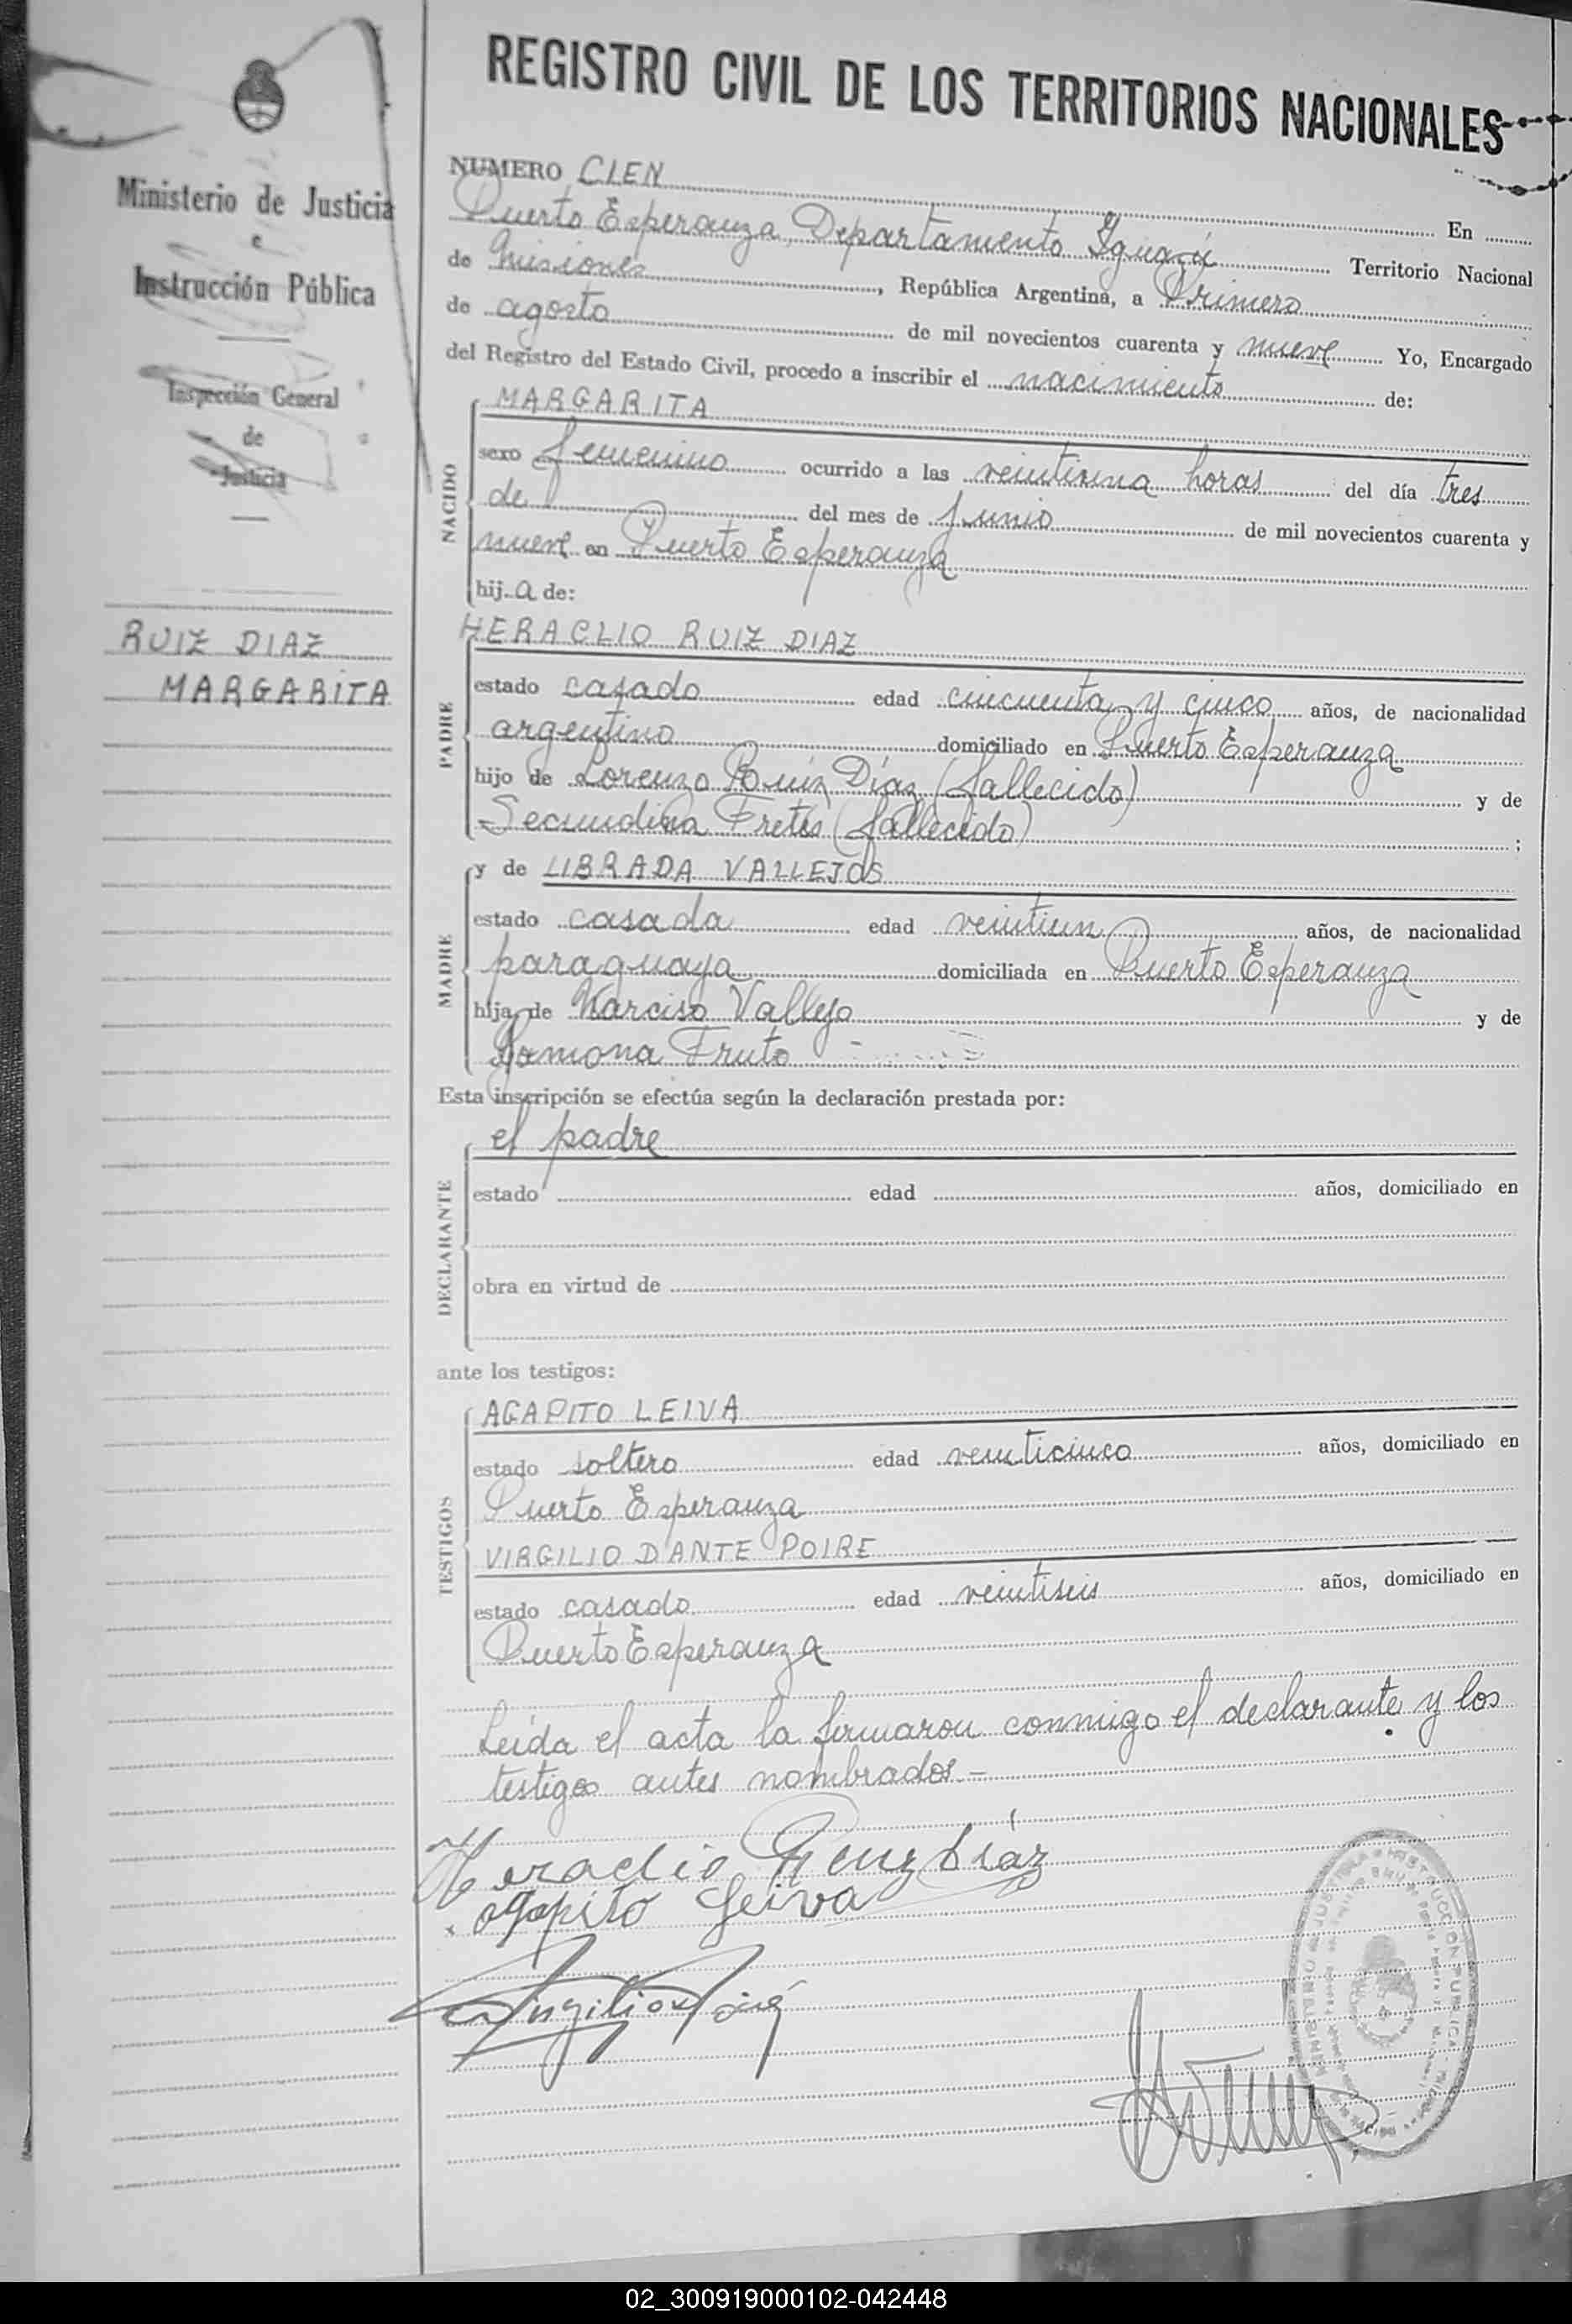 REGISTRO CIVIL DE LOS TERRITORIOS NACIONALES
Ministerio de Justicia
e
Instrucción Pública
Inspección General
de
Justicia
RUIZ DIAZ
MARGARITA
NUMERO CIEN En
Puerto Esperanza, Departamento Iguazú Territorio Nacional
de Misiones, República Argentina, a Primero
de agosto de mil novecientos cuarenta y nueve Yo, Encargado
del Registro del Estado Civil, procedo a inscribir el nacimiento de:
NACIDO
MARGARITA
sexo femenino ocurrido a las veintiuna horas del día tres
de del mes de Junio de mil novecientos cuarenta y
nueve en Puerto Esperanza
hij a de:
PADRE
HERACLIO RUIZ DIAZ
estado casado edad cincuenta y cinco años, de nacionalidad
argentino domiciliado en Puerto Esperanza
hijo de Lorenzo Ruiz Díaz (fallecido) y de
Secundina Fretes (fallecido) ;
MADRE
y de LIBRADA VALLEJOS
estado casada edad veintiun años, de nacionalidad
paraguaya domiciliada en Puerto Esperanza
hija de Narciso Vallejo y de
Ramona Fruto
Esta inscripción se efectúa según la declaración prestada por:
DECLARANTE
el padre
estado edad años, domiciliado en
obra en virtud de
ante los testigos:
TESTIGOS
AGAPITO LEIVA
estado soltero edad veinticinco años, domiciliado en
Puerto Esperanza
VIRGILIO DANTE POIRE
estado casado edad veintiseis años, domiciliado en
Puerto Esperanza
Leída el acta la firmaron conmigo el declarante y los
testigos antes nombrados.-
Heraclio Ruiz Díaz
Agapito Leiva
Virgilio Poiré
MINISTERIO DE JUSTICIA E INSTRUCCION PUBLICA
02_300919000102-042448